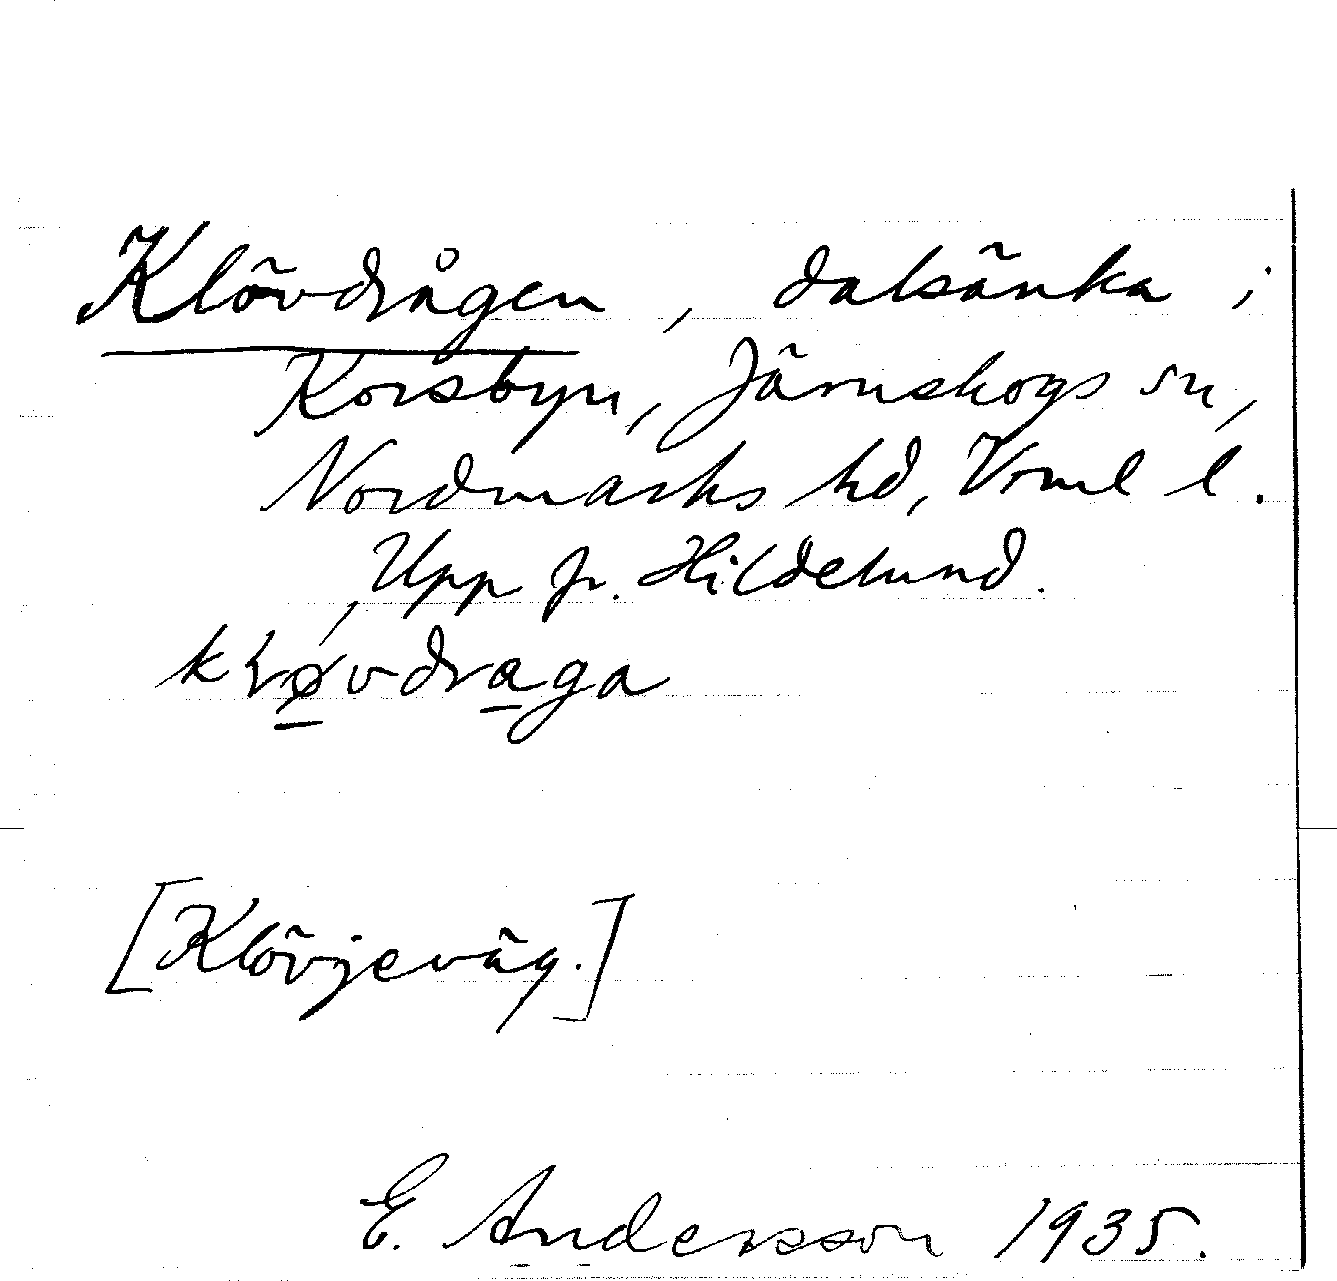 Klövdrågen, dalsänka i
Korsbyn, Järnskogs sn,
Nordmarks hd, Vrml l.
Upp fr. Hildelund.
[Klövjeväg.]
E. Andersson 1935.